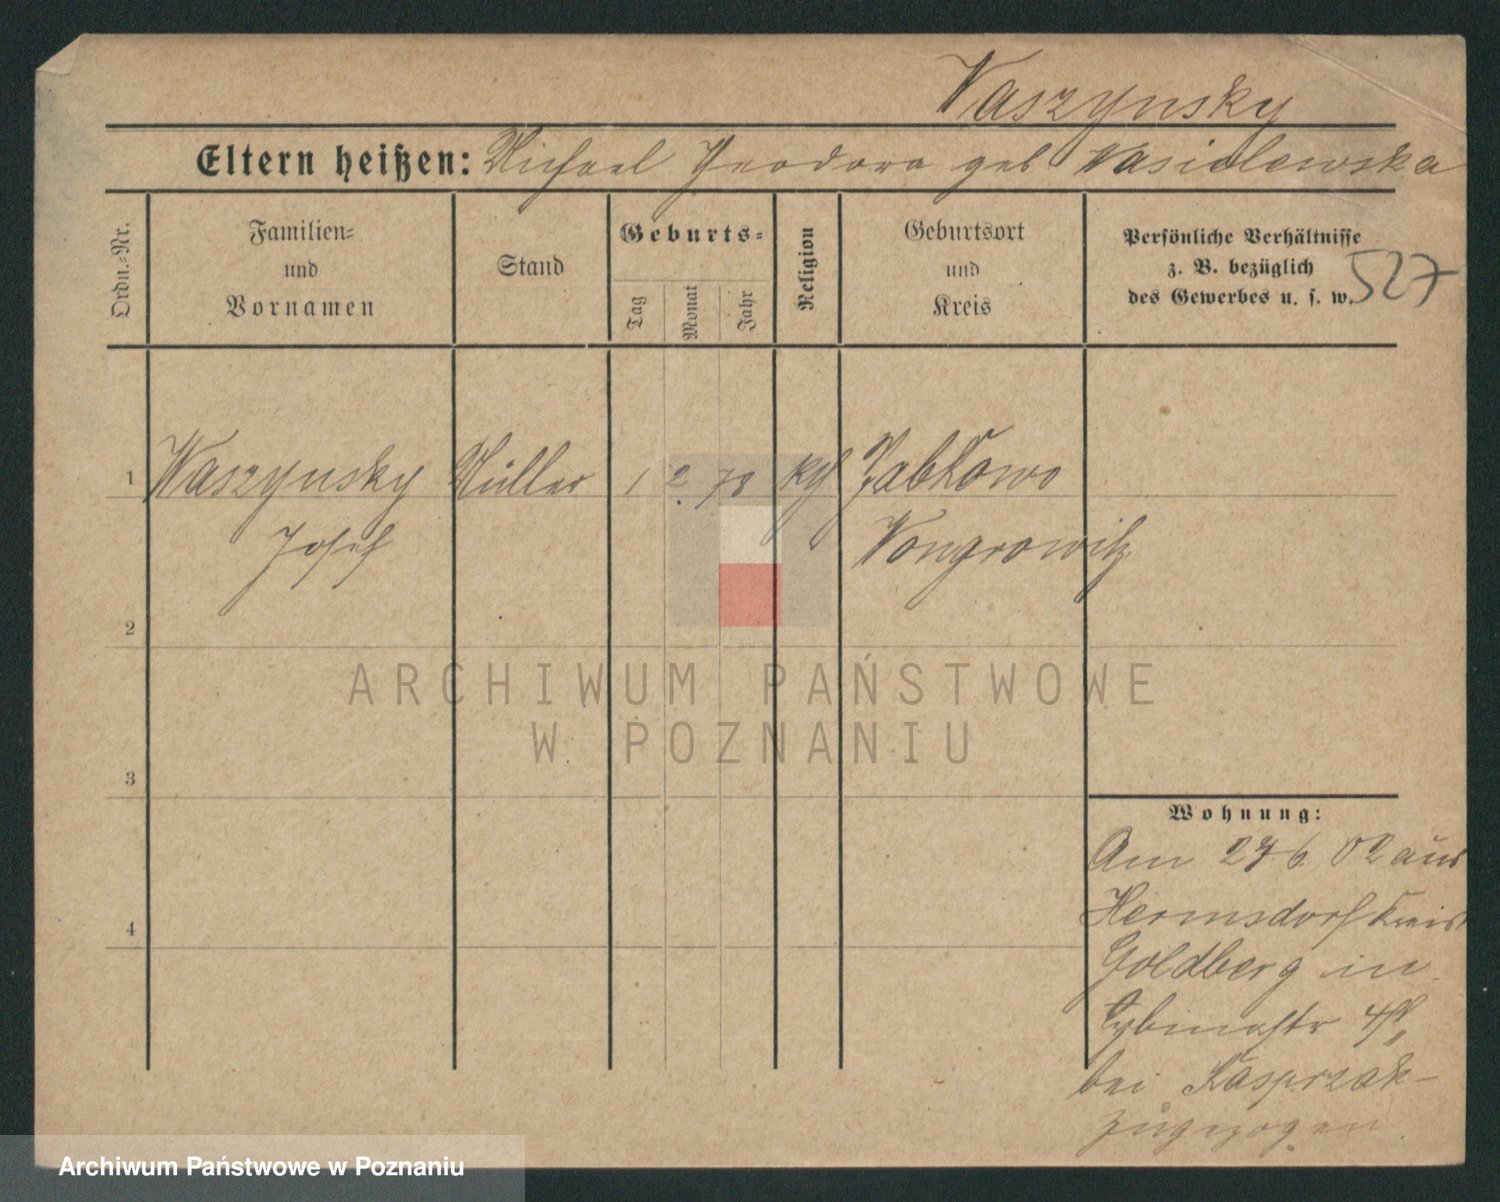 Waszynsky
Eltern heißen: Michael Theodora geb Wasielewska
Ordn.-Nr.
Familien-
und
Vornamen
Stand
Geburts-
Tag
Monat
Jahr
Religion
Geburtsort
und
Kreis
Persönliche Verhältnisse
z. B. bezüglich
des Gewerbes u. s. w.
527
1 Waszynsky Müller 1 2 78 kth Jabłowo
Josef Wongrowitz
2
ARCHIWUM PAŃSTWOWE
W POZNANIU
3
Wohnung:
Am 27 6 02 aus
Hermsdorf Kreis
4
Goldberg in
Cybinastr
bei Kasprzak
zugezogen.
Archiwum Państwowe w Poznaniu